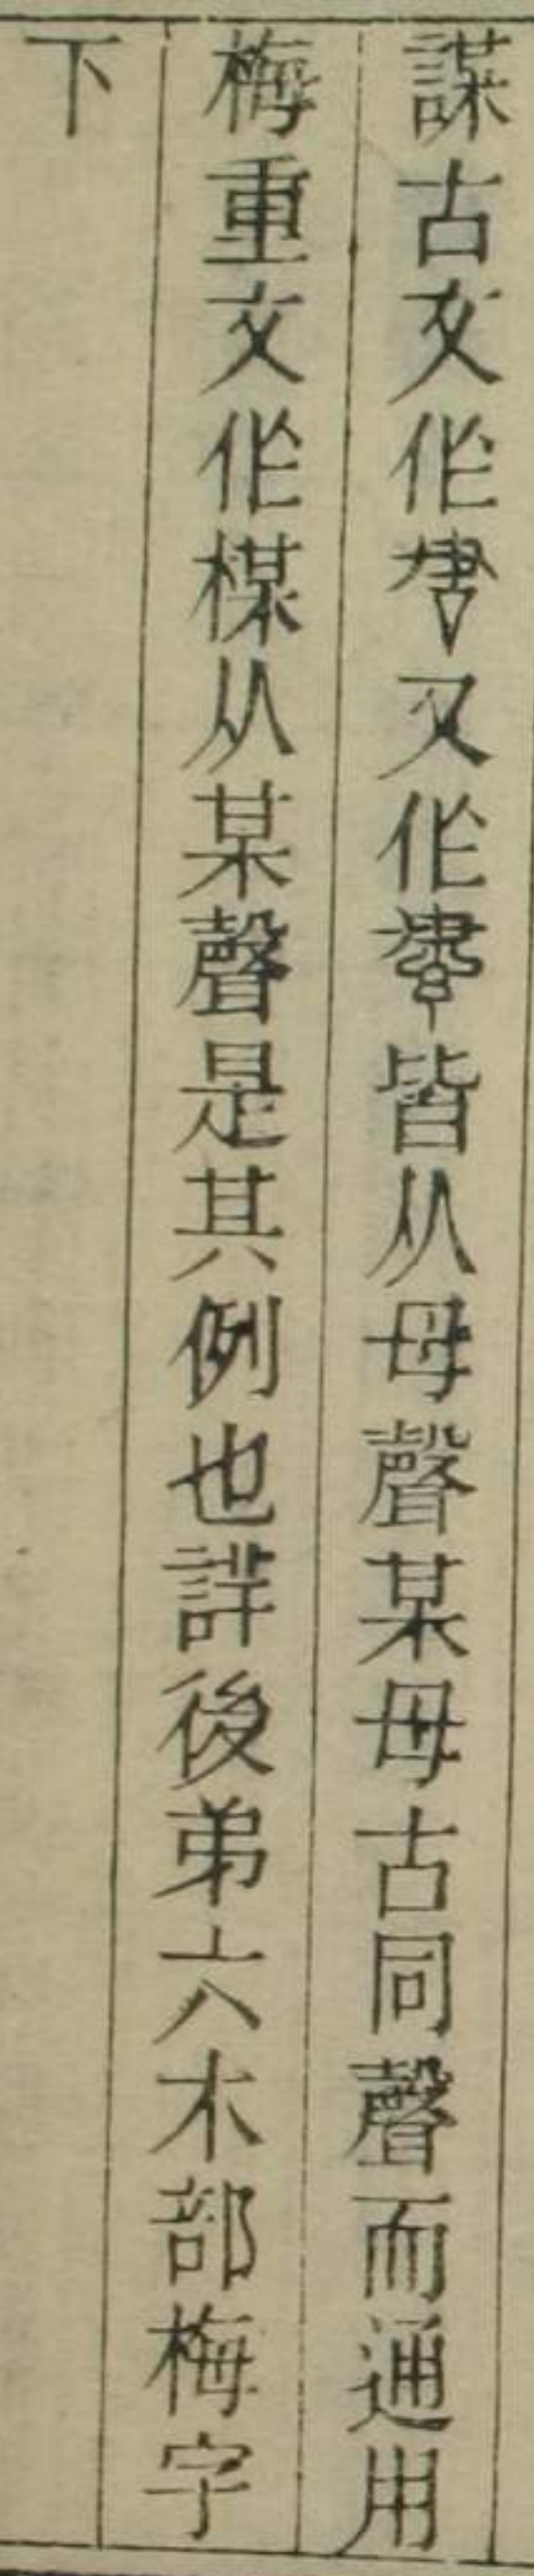 謀古文作又作皆从母聲某母古同聲而通用
梅重文作楳从某聲是其例也詳後弟六木部梅字
下